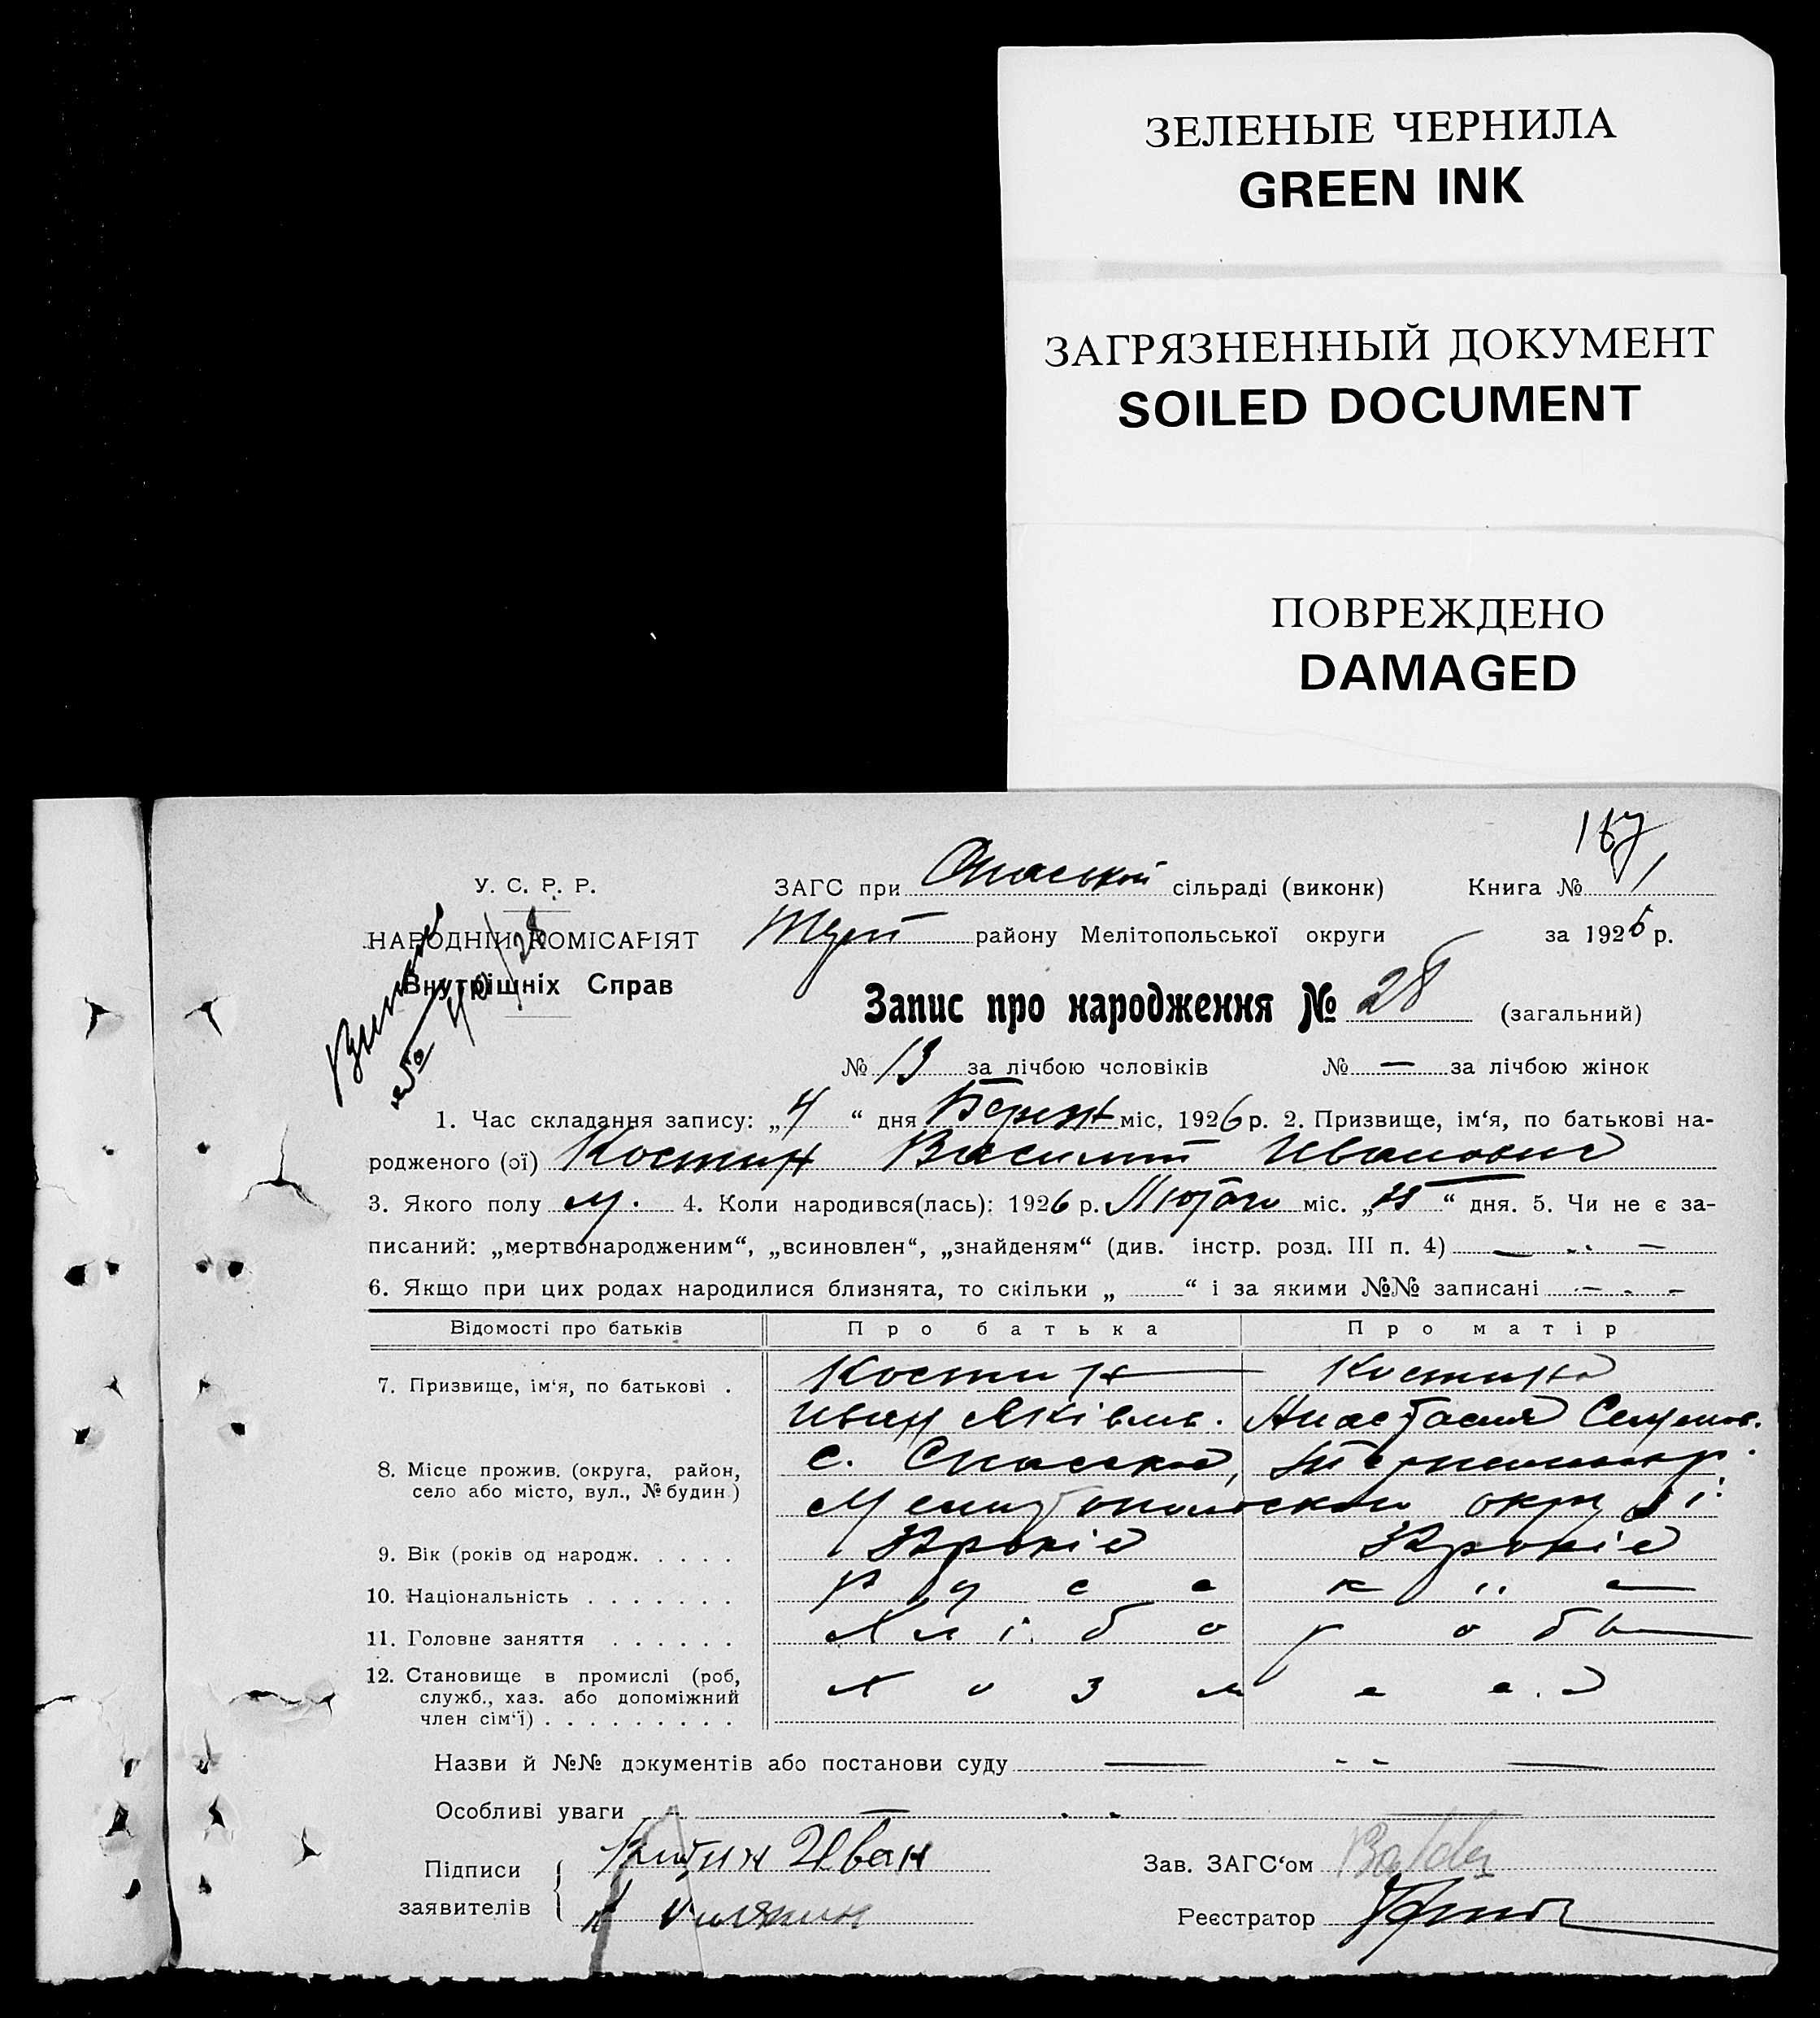 ЗЕЛЕНЫЕ ЧЕРНИЛА
GREEN INK
ЗАГРЯЗНЕННЫЙ ДОКУМЕНТ
SOILED DOCUMENT
ПОВРЕЖДЕНО
DAMAGED
167
У. С. Р. Р.
НАРОДНІЙ КОМІСАРІЯТ
Внутрішніх Справ
ЗАГС при Спаській сільраді (виконк) Книга № 1
району Мелітопольської округи за 1926 р.
Запис про народження № 28 (загальний)
№ 13 за лічбою чоловіків № — за лічбою жінок
1. Час складання запису: „4“ дня міс. 1926 р. 2. Призвище, ім‘я, по батькові на-
родженого (ої) Костин Василий Иванович
3. Якого полу м. 4. Коли народився(лась): 1926 р. Лютого міс. „ “ дня. 5. Чи не є за-
писаний: „мертвонародженим“, „всиновлен“, „знайденям“ (див. інстр. розд. III п. 4) —
6. Якщо при цих родах народилися близнята, то скільки „ “ і за якими №№ записані —
Відомості про батьків Про батька Про матір
7. Призвище, ім‘я, по батькові . Костин Костина
Иван Яківлів. Анастасия Семенов.
8. Місце прожив. (округа, район,
село або місто, вул., № будин)
с. Спаська,
округі
9. Вік (років од народж. . . . .
10. Національність . . . . . . . руск
11. Головне заняття . . . . . . Хлібороб
12. Становище в промислі (роб,
служб., хаз. або допоміжний
член сім‘ї) . . . . . . . . .
Назви й №№ документів або постанови суду —
Особливі уваги —
Підписи
заявителів
Костин Иван
Зав. ЗАГС‘ом
Реєстратор